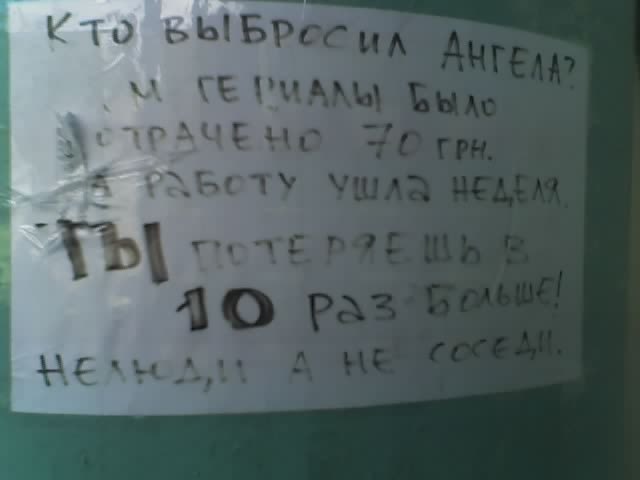 КТО ВЫБРОСИЛ АНГЕЛА?
МАТЕРИАЛЫ БЫЛО
ПОТРАЧЕНО 70 ГРН.
НА РАБОТУ УШЛА НЕДЕЛЯ.
ТЫ ПОТЕРЯЕШЬ В
10 РАЗ БОЛЬШЕ!
НЕЛЮДИ А НЕ СОСЕДИ.